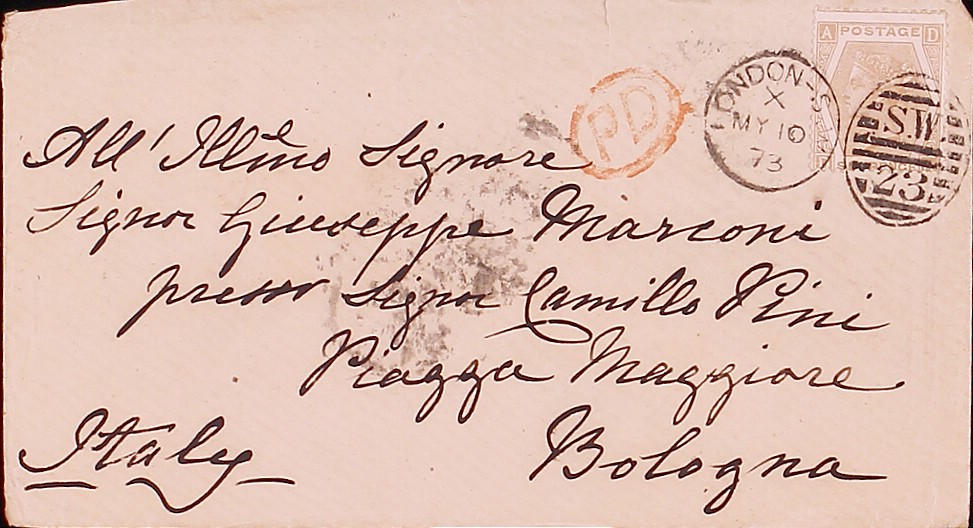 POSTAGE
A D
LONDON-S
X
MY 10
73
S.W
23
PD
All' Illmo Signore
Signor Giuseppe Marconi
presso Signor Camillo Pini
Piazza Maggiore
Bologna
Italy